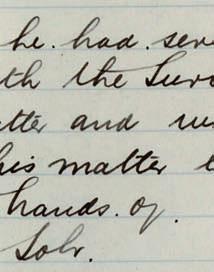 he. had. seve
th the Surv
tter and w
his matter t
hands. of.
Solr.